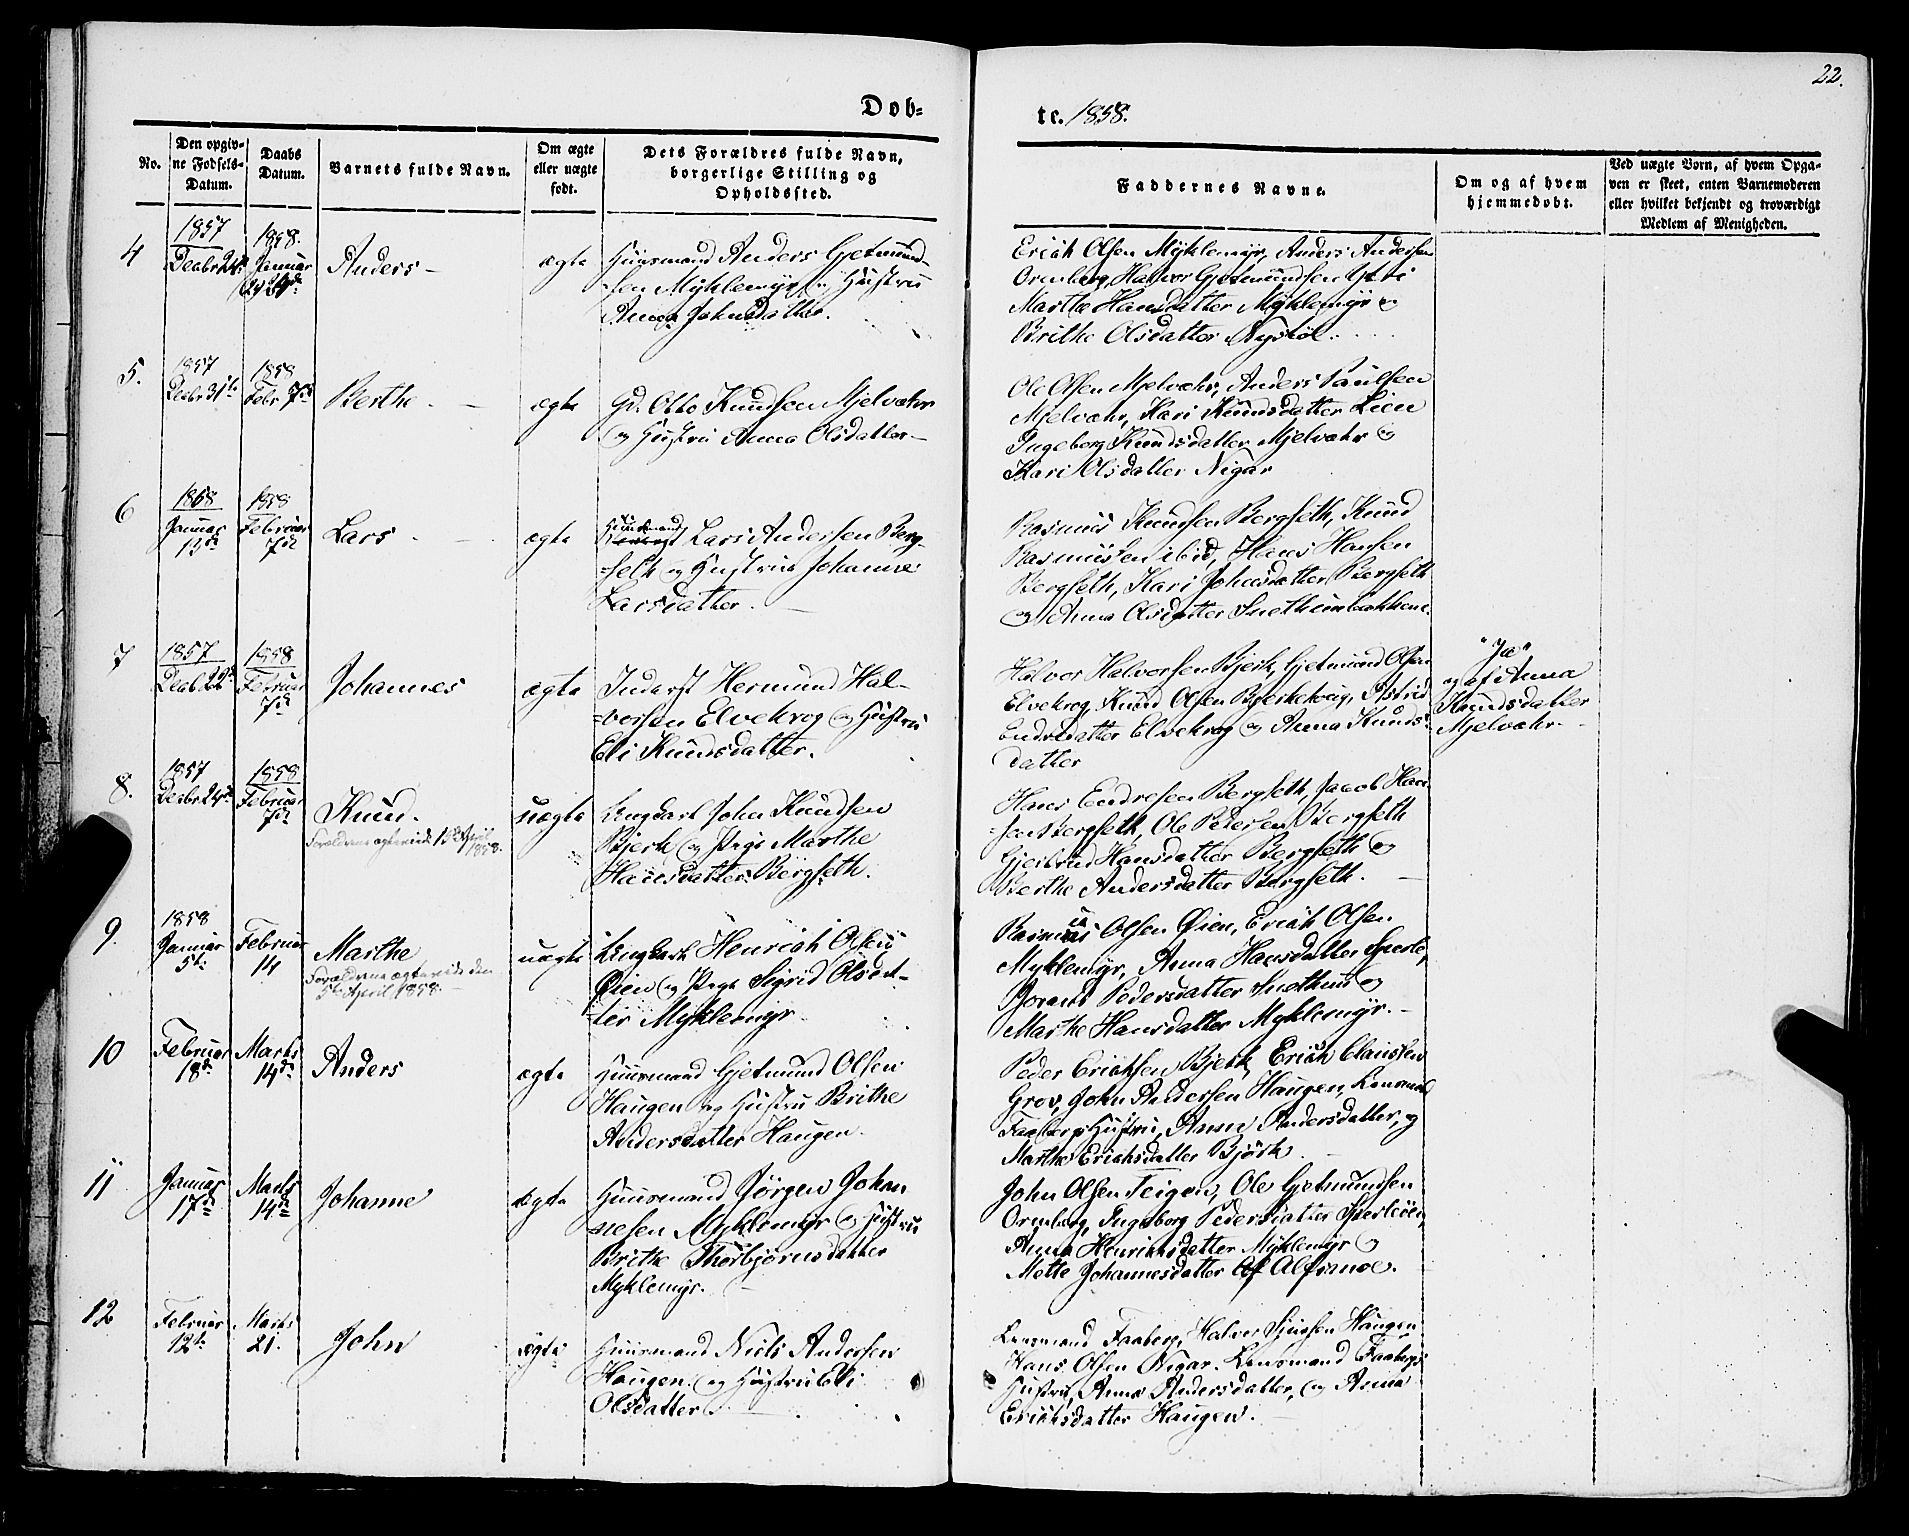 22.
Dob-
te. 1858.
No.
Den opgiv-
ne Fødsels-
Datum.
Daabs
Datum.
Barnets fulde Navn.
Om ægte
eller uægte
født.
Dets Forældres fulde Navn,
borgerlige Stilling og
Opholdssted.
Faddernes Navne.
Om og af hvem
hjemmedøbt.
Ved uægte Børn, af hvem Opga-
ven er skeet, enten Barnemoderen
eller hvilket bekjendt og troværdigt
Medlem af Menigheden.
4
1857
Decbr 24
1858.
Januar
Anders
ægte
Huusmand Anders Gjetmund-
sen Myklemyr og Hustru
Anna Johnsdatter.
Erich Olsen Myklemyr, Anders Andersen
Ormberg, Halvor Gjetmundsen
Marthe Hansdatter Myklemyr og
Brithe Olsdatter Nystøl
5.
1857
Decbr 31te
1858
Febr 7de
Berthe
ægte
Gd. Otto Knudsen Mjelvæhr
og Hustru Anna Olsdatter
Ole Olsen Mjelvæhr, Anders Paulsen
Mjelvæhr, Kari Knudsdatter Lien
Ingeborg Knudsdatter Mjelvæhr og
Kari Olsdatter Nigar
6
1858
Januar
1858
Februar
7de
Lars
ægte
Huusmand
Lars Andersen Berg-
seth og Hustru Johanne
Larsdatter.
Rasmus Knudsen Bergseth, Knud
Rasmussen ibid, Hans Hansen
Bergseth, Kari Johnsdatter Bergseth
og Anna Olsdatter Snethunbakkene
7
1857
Decb 22de
1858
Februar
7de
Johannes
ægte
Inderst Hermund Hal-
vorsen Elvekrog og Hustru
Eli Knudsdatter.
Halvor Halvorsen Bjerk, Gjetmund Olsen
Elvekrog, Knud Olsen Bjerkehaug, Astrid
Endredatter Elvekrog og Anna Knuds-
datter
"Ja"
og af Anna
Knudsdatter
Mjelvæhr.
8.
1857
Decbr 24de
1858
Februar
7de
Knud.
Forældrene ægteviede 15 April
1858.
uægte
Ungkarl John Knudsen
Bjerk og Pige Marthe
Hansdatter Bergseth.
Hans Endresen Bergseth, Jacob Han-
sen Bergseth, Ole Pedersen Bergseth
Gjertrud Hansdatter Bergseth og
Berthe Andersdatter Bergseth.
9.
1858
Januar
5te
Februar
14
Marthe
Forældrene ægteviede den
5te April 1858.
uægte
Ungkarl Henrich Olsen
Øien og Pige Sigrid Olsdat-
ter Myklemyr
Rasmus Olsen Øien, Erich Olsen
Myklemyr, Anna Hansdatter Sperle,
Pedersdatter Snethun og
Marthe Hansdatter Myklemyr.
10
Februar
18de
Marts
14de
Anders
ægte
Huusmand Gjetmund Olsen
Haugen og Hustru Brithe
Andersdatter Haugen.
Peder Erichsen Bjerk, Erich Clausen
Grov, John Andersen Haugen, Lensmand
Faabergs Hustru, Anne Andersdatter, og
Marthe Erichsdatter Björk.
11
Januar
17de
Marts
14de
Johanne
ægte
Huusmand Jørgen Johan
nesen Myklemyr og Hustru
Brithe Thorbjørnsdatter
Myklemyr.
John Olsen Teigen, Ole Gjetmundsen
Ormberg, Ingeborg Pedersdatter Sperleöen
Anna Henrichsdatter Myklemyr og
Mette Johannesdatter Alsmoe.
12
Februar
12te
Marts
21.
John
ægte
Huusmand Niels Andersen
Haugen og Hustru Eli
Olsdatter
Lensmand Faaberg, Halvor Sjursen Haugen
Hans Olsen Nigar. Lensmand Faabergs
Hustru, Anna Andersdatter, og Anna
Erichsdatter Haugen.